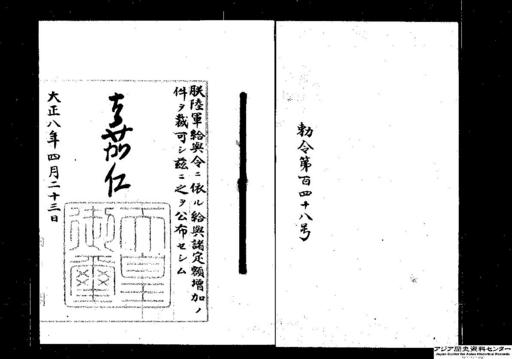 勅令第百四十八号
朕陸軍給與令ニ依ル給與諸定額増加ノ
件ヲ裁可シ茲ニ之ヲ公布セシム
嘉仁
天皇
御璽
大正八年四月二十三日
アジア歴史資料センター
Japan Center for Asian Historical Records